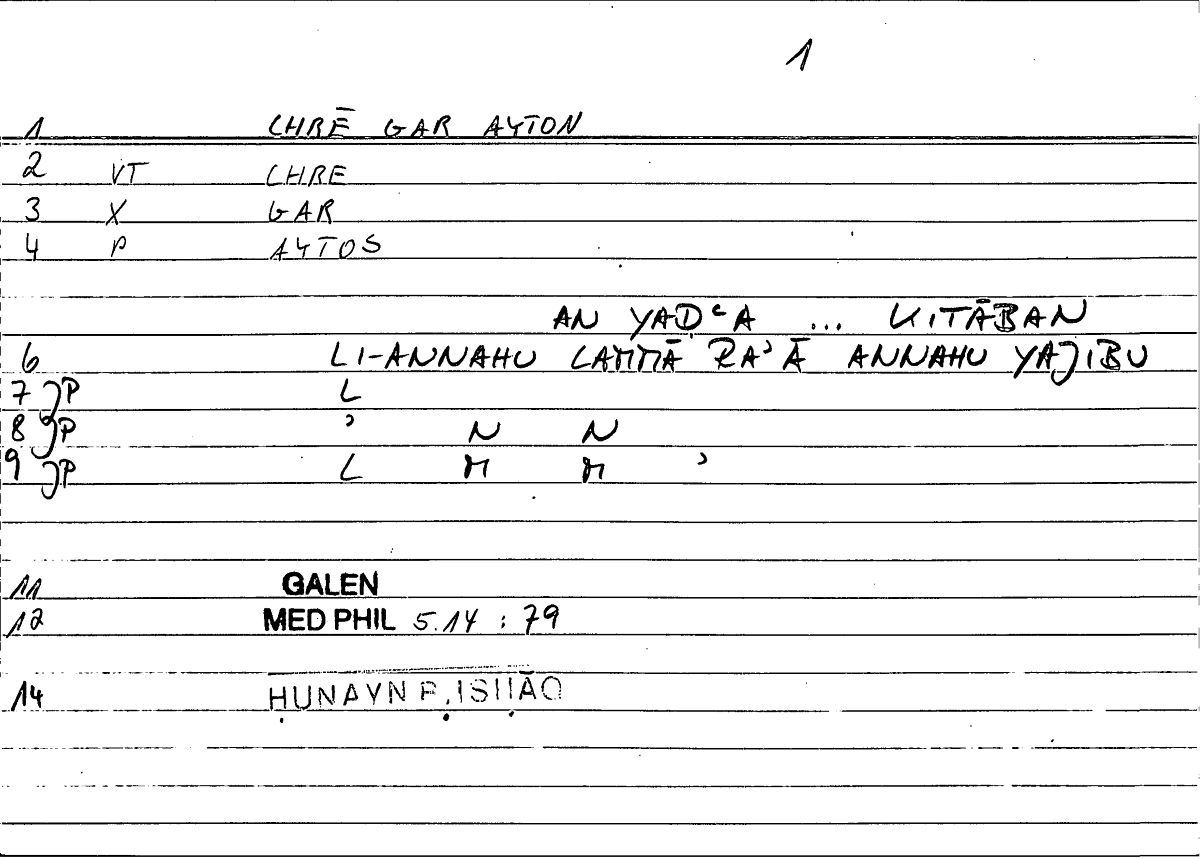 1
1 CHRĒ GAR AYTON
2 VT CHRE
3 X GAR
4 P AYTOS
AN YAḌʿA ... KITĀBAN
6 LI-ANNAHU LAMMĀ RAʾĀ ANNAHU YAJIBU
7 JP L
8 JP ʾ N N
9 JP L M M ʾ
11 GALEN
12 MED PHIL 5.14 : 79
14 ḤUNAYN B. ISḤĀQ